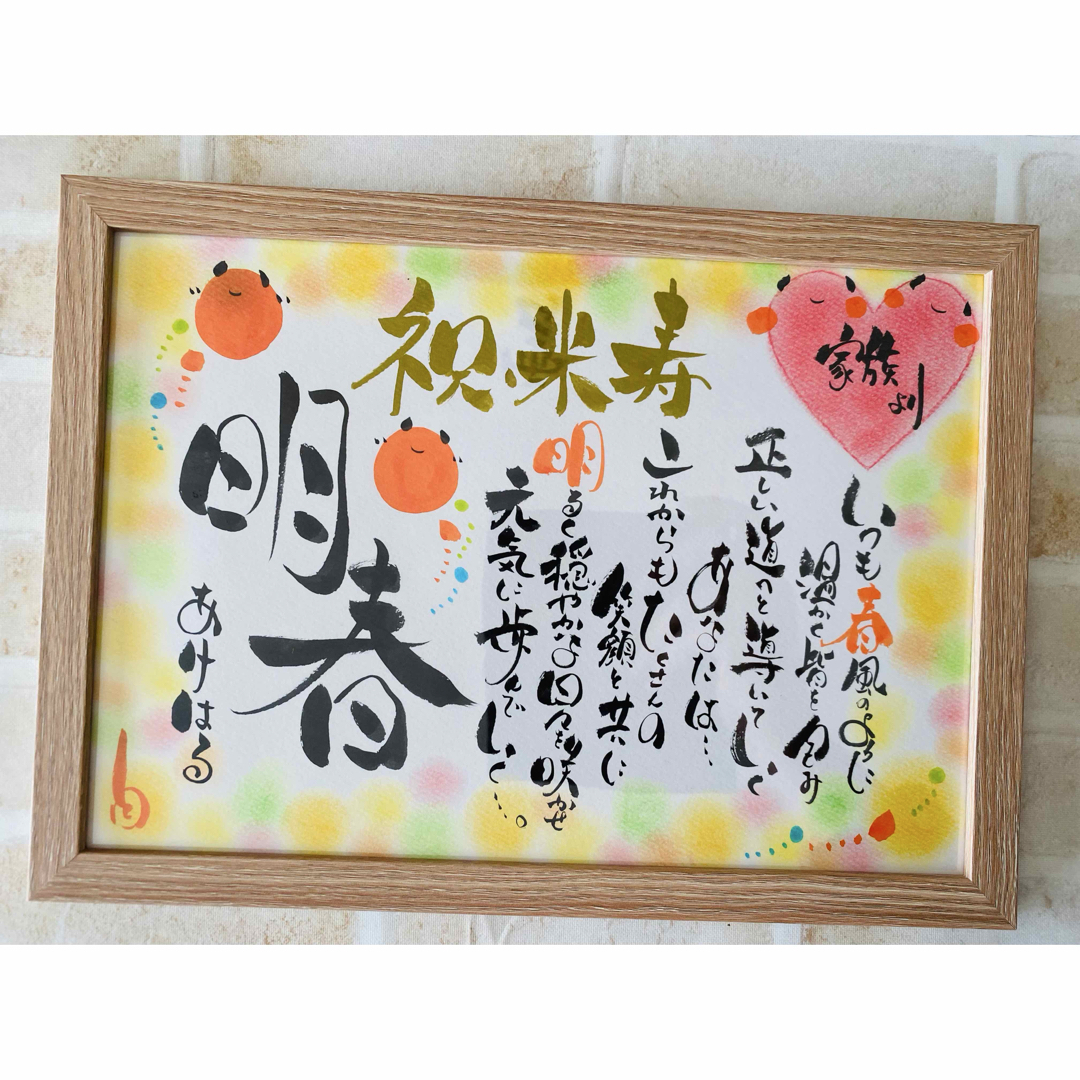 祝・米寿
家族
より
いつも春風のように
温かく皆を包み
正しい道のを導いてしく
あなたは…
これからもたくさんの
笑顔と共に
明るく穏やかな日々を咲かせ
元気に歩んでいく…。
明春
あけはる